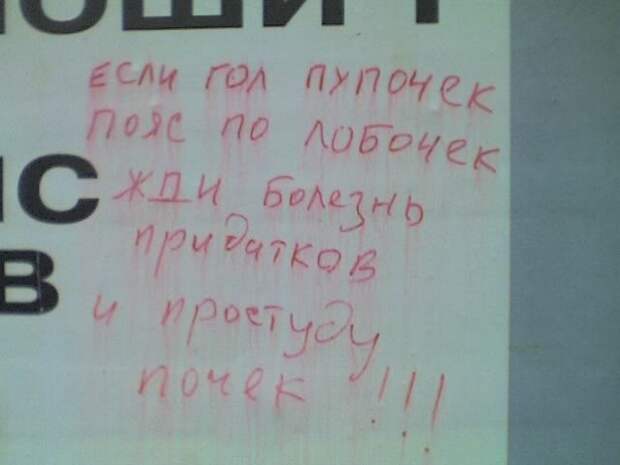 ЕСЛИ ГОЛ ПУПОЧЕК
ПОЯС ПО ЛОБОЧЕК
ЖДИ БОЛЕЗНЬ
ПРИДАТКОВ
И ПРОСТУДУ
ПОЧЕК !!!